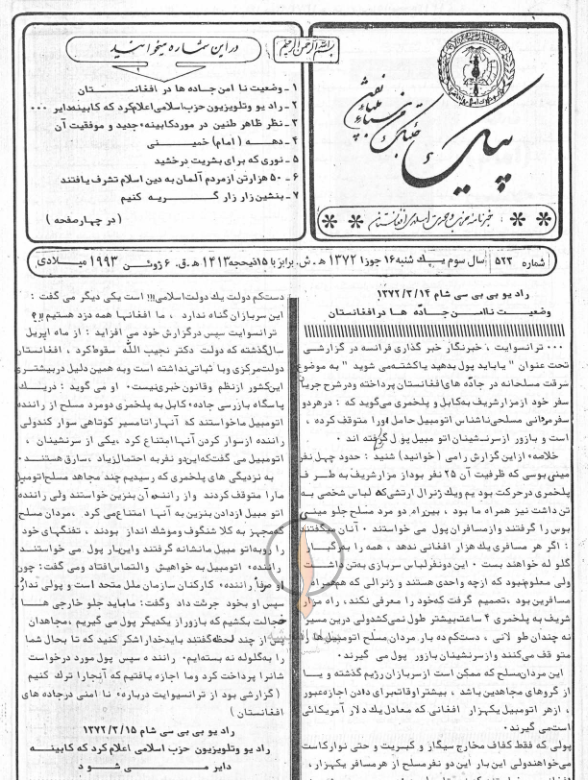 بسم الله الرحمن الرحیم
در این شماره میخوانید
۱ - وضعیت نا امن جاده ها در افغانستان
۲ - رادیو وتلویزیون حزب اسلامی اعلام کرد که کابینه دایر ۰۰۰
۳ - نظر ظاهر طنین در مورد کابینهء جدید و موفقیت آن
۴ - دهه ( امام ) خمینی
۵ - نوری که برای بشریت درخشید
۶ - ۵۰ هزار تن از مردم آلمان به دین اسلام تشرف یافتند
۷ - بنشین زار زار گریه کنیم
( در چهار صفحه )
پیک
خبرنامه حزب وحدت اسلامی افغانستان
شماره ۵۲۳
سال سوم یک شنبه ۱۶ جوزا ۱۳۷۲ ه . ش . برابر با ۱۵ ذیحجه ۱۴۱۳ ه . ق . ۶ ژوئن ۱۹۹۳ میلادی
رادیو بی بی سی شام ۱۳۷۲/۳/۱۴
وضعیت ناامن جاده ها در افغانستان
۰۰۰ ترانسوایت ، خبرنگار خبر گذاری فرانسه در گزارشی
تحت عنوان " یا باید پول بدهید یا کشته می شوید " به موضوع
سرقت مسلحانه در جاده های افغانستان پرداخته ودر شرح جریان
سفر خود از مزار شریف به کابل و پلخمری می گوید که : در هر دو
سفر مردانی مسلحی ناشناس اتومبیل حامل او را متوقف کرده ،
است و با زور از سرنشینان اتو مبیل پول گرفته اند ۰
خلاصهء از این گزارش را می ( خوانید ) شنید : حدود چهل نفر
مینی بوسی که ظرفیت آن ۲۵ نفر بود از مزار شریف به طرف
پلخمری در حرکت بودیم ویک ژنرال ارتشی که لباس شخصی به
تن داشت نیز همراه ما بود ، بین راه دو مرد مسلح جلو مینی
بوس را گرفتند واز مسافران پول می خواستند ۰ آنان میگفتند
: اگر هر مسافری یک هزار افغانی ندهد ، همه را به رگبار
گلو له خواهند بست ۰ این دو نفر لباس سربازی به تن داشتند
ولی معلوم نبود که از چه واحدی هستند و ژنرالی که همراه
مسافرین بود ، تصمیم گرفت که خود را معرفی نکند ، راه مزار
شریف به پلخمری ۴ ساعت بیشتر طول نمی کشد ولی در این مسیر
نه چندان طو لانی ، دستکم ده بار مردان مسلح اتومبیل ها را
متو قف می کنند واز سرنشینان با زور پول می گیرند ۰
این مردان مسلح که ممکن است از سربازان رژیم گذشته و یا
از گروهای مجاهدین باشد ، بیشتر اوقات برای دادن اجازه عبور
، از هر اتومبیل یکهزار افغانی که معادل یک دلار آمریکائی
است می گیرند ۰
پولی که فقط کفاف مخارج سیگار و کبریت و حتی نوار کاست
می خواهند ولی این بار این دو نفر مسلح از هر مسافر یکهزار ،
دستکم دولت یک دولت اسلامی !!! است یکی دیگر می گفت :
این سربازان گناه ندارد ، ما افغانها همه دزد هستیم !!؟
ترانسوایت سپس در گزارش خود می افزاید : از ماه اپریل
سال گذشته که دولت دکتر نجیب الله سقوط کرد ، افغانستان
دولت مرکزی و با ثباتی نداشته است وبه همین دلیل در بیشتری
این کشور از نظم وقانون خبری نیست ۰ او می گوید : در یک
پاسگاه بازرسی جاده کابل به پلخمری دو مرد مسلح از راننده
اتومبیل ما خواستند که آنها را تا مسیر کوتاهی سوار کند ولی
راننده از سوار کردن آنها امتناع کرد ، یکی از سرنشینان ،
اتومبیل می گفت که این دو نفر به احتمال زیاد ، سارق هستند ۰
به نزدیکی های پلخمری که رسیدیم چند مجاهد مسلح اتومبیل
ما را متوقف کردند واز راننده آن بنزین خواستند ولی راننده
اتومبیل از دادن بنزین به آنها امتناع می کرد ، مردان مسلح
مجهز به کلا شنگوف وموشک انداز بودند ، تفنگهای خود
را رو به اتو مبیل ما نشانه گرفتند واین بار پول می خواستند
رانندهء اتومبیل به خواهش والتماس افتاد ومی گفت : چون
او صرفا رانندهء کارکنان سازمان ملل متحد است و پولی ندارد
سپس او بخود جرئت داد وگفت : ما باید جلو خارجی ها
خجالت بکشیم که با زور از یکدیگر پول می گیریم ، مجاهدان
پس از چند لحظه گفتند باید خدا را شکر کنید که تا بحال شما
را به گلوله نه بسته ایم ۰ راننده سپس پول مورد درخواست
شان را پرداخت کرد وما اجازه یافتیم که آنجا را ترک کنیم
( گزارشی بود از ترانسوایت دربارهء نا امنی در جاده های
افغانستان )
رادیو بی بی سی شام ۱۳۷۲/۳/۱۵
رادیو وتلویزیون حزب اسلامی اعلام کرد که کابینه
دایر می شود